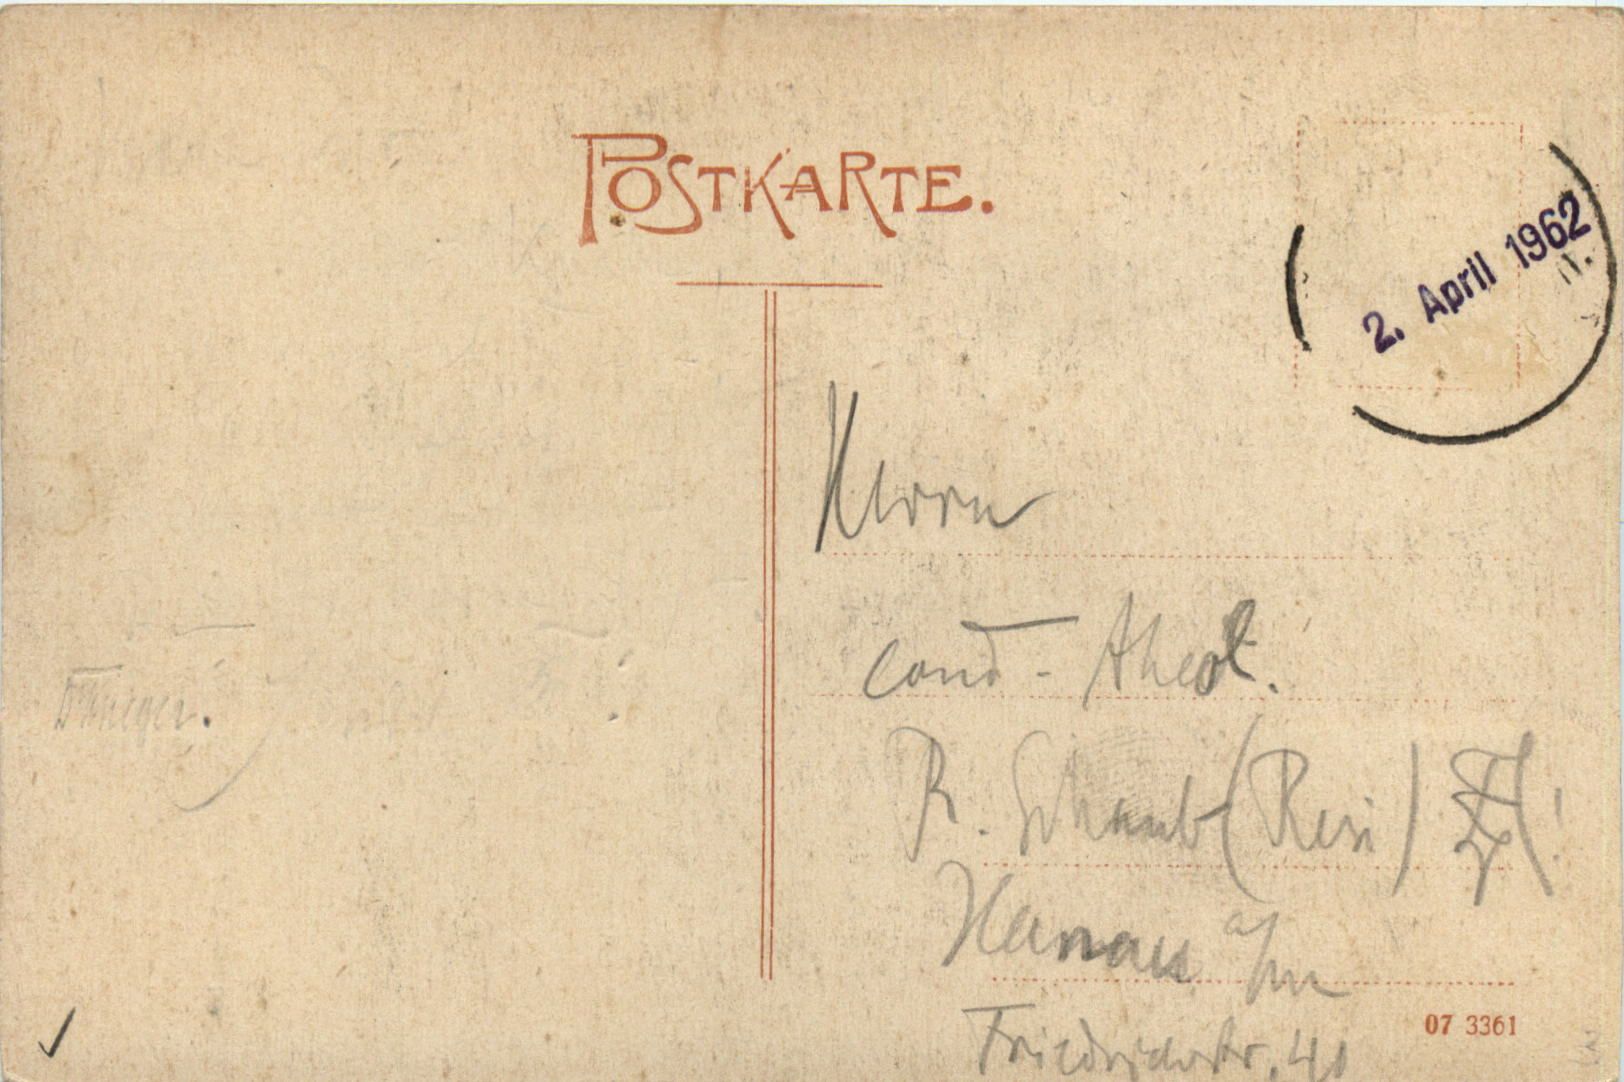 POSTKARTE.
2. April 1962
Herrn
cand. Theol.
R. Schaub (Resi)
Hanau a/M
Friedrichstr. 40
07 3361